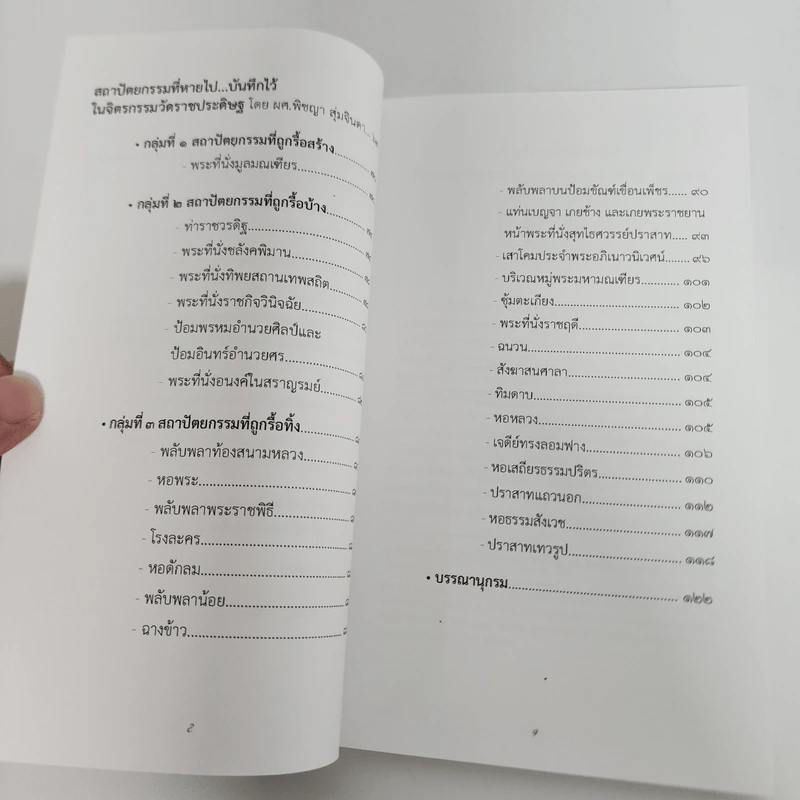 สถาปัตยกรรมที่หายไป...บันทึกไว้
ในจิตรกรรมวัดราชประดิษฐ โดย ผศ.พิชญา สุ่มจินดา...
• กลุ่มที่ ๑ สถาปัตยกรรมที่ถูกรื้อสร้าง
- พระที่นั่งมูลมณเฑียร
• กลุ่มที่ ๒ สถาปัตยกรรมที่ถูกรื้อบ้าง
- ท่าราชวรดิฐ
- พระที่นั่งชลังคพิมาน
- พระที่นั่งทิพยสถานเทพสถิต
- พระที่นั่งราชกิจวินิจฉัย
- ป้อมพรหมอำนวยศิลป์และ
ป้อมอินทร์อำนวยศร
- พระที่นั่งอนงค์ในสราญรมย์
• กลุ่มที่ ๓ สถาปัตยกรรมที่ถูกรื้อทิ้ง
- พลับพลาท้องสนามหลวง
- หอพระ
- พลับพลาพระราชพิธี
- โรงละคร
- หอดักลม
- พลับพลาน้อย
- ฉางข้าว
- พลับพลาบนป้อมขัณฑ์เขื่อนเพ็ชร...... ๙๐
- แท่นเบญจา เกยช้าง และเกยพระราชยาน
หน้าพระที่นั่งสุทไธศวรรย์ปราสาท..... ๙๓
- เสาโคมประจำพระอภิเนาวนิเวศน์........ ๙๖
- บริเวณหมู่พระมหามณเฑียร........... ๑๐๑
- ซุ้มตะเกียง........... ๑๐๒
- พระที่นั่งราชฤดี........... ๑๐๓
- ฉนวน........... ๑๐๔
- สังฆาสนศาลา........... ๑๐๔
- ทิมดาบ........... ๑๐๕
- หอหลวง........... ๑๐๕
- เจดีย์ทรงลอมฟาง........... ๑๐๖
- หอเสถียรธรรมปริตร........... ๑๑๐
- ปราสาทแถวนอก........... ๑๑๒
- หอธรรมสังเวช........... ๑๑๗
- ปราสาทเทวรูป........... ๑๑๘
• บรรณานุกรม........... ๑๒๒